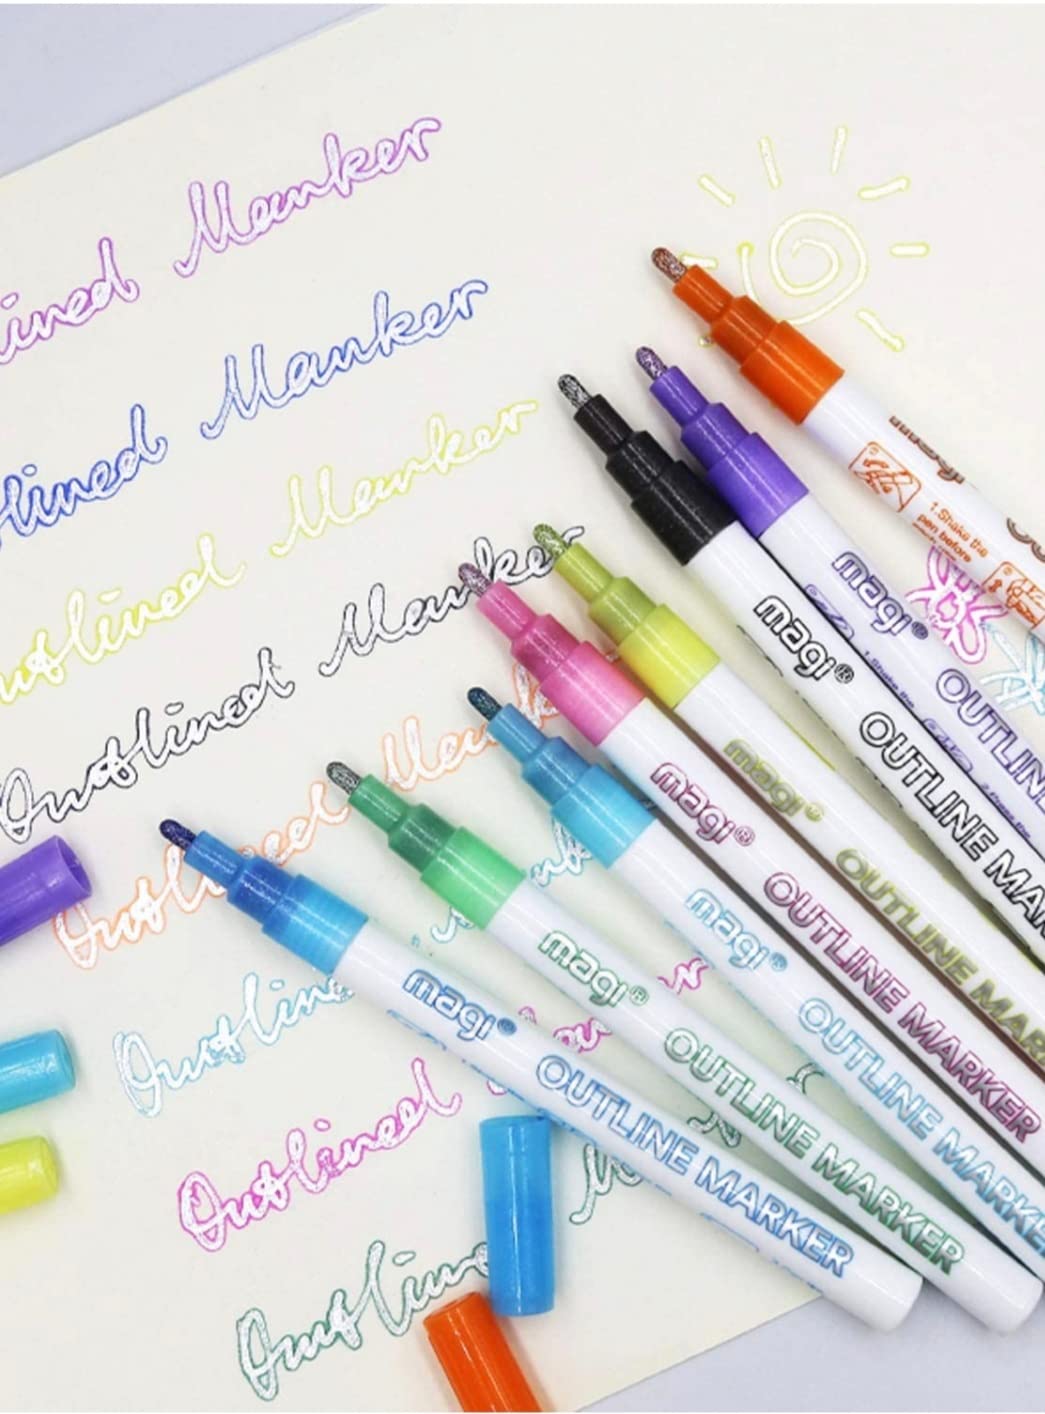 ined Marker
lined Marker
outlined Marker
Outlined Marker
Outlined Mark
Outline
Outlined
Outline M
magi
1. Shake the
pen before
magi®
OUTLINE
1. Shake the
magi®
OUTLINE MAR
magi®
OUTLINE MAR
magi®
OUTLINE MARKER
magi®
OUTLINE MARKE
magi®
OUTLINE MARKER
magi®
OUTLINE MARKER